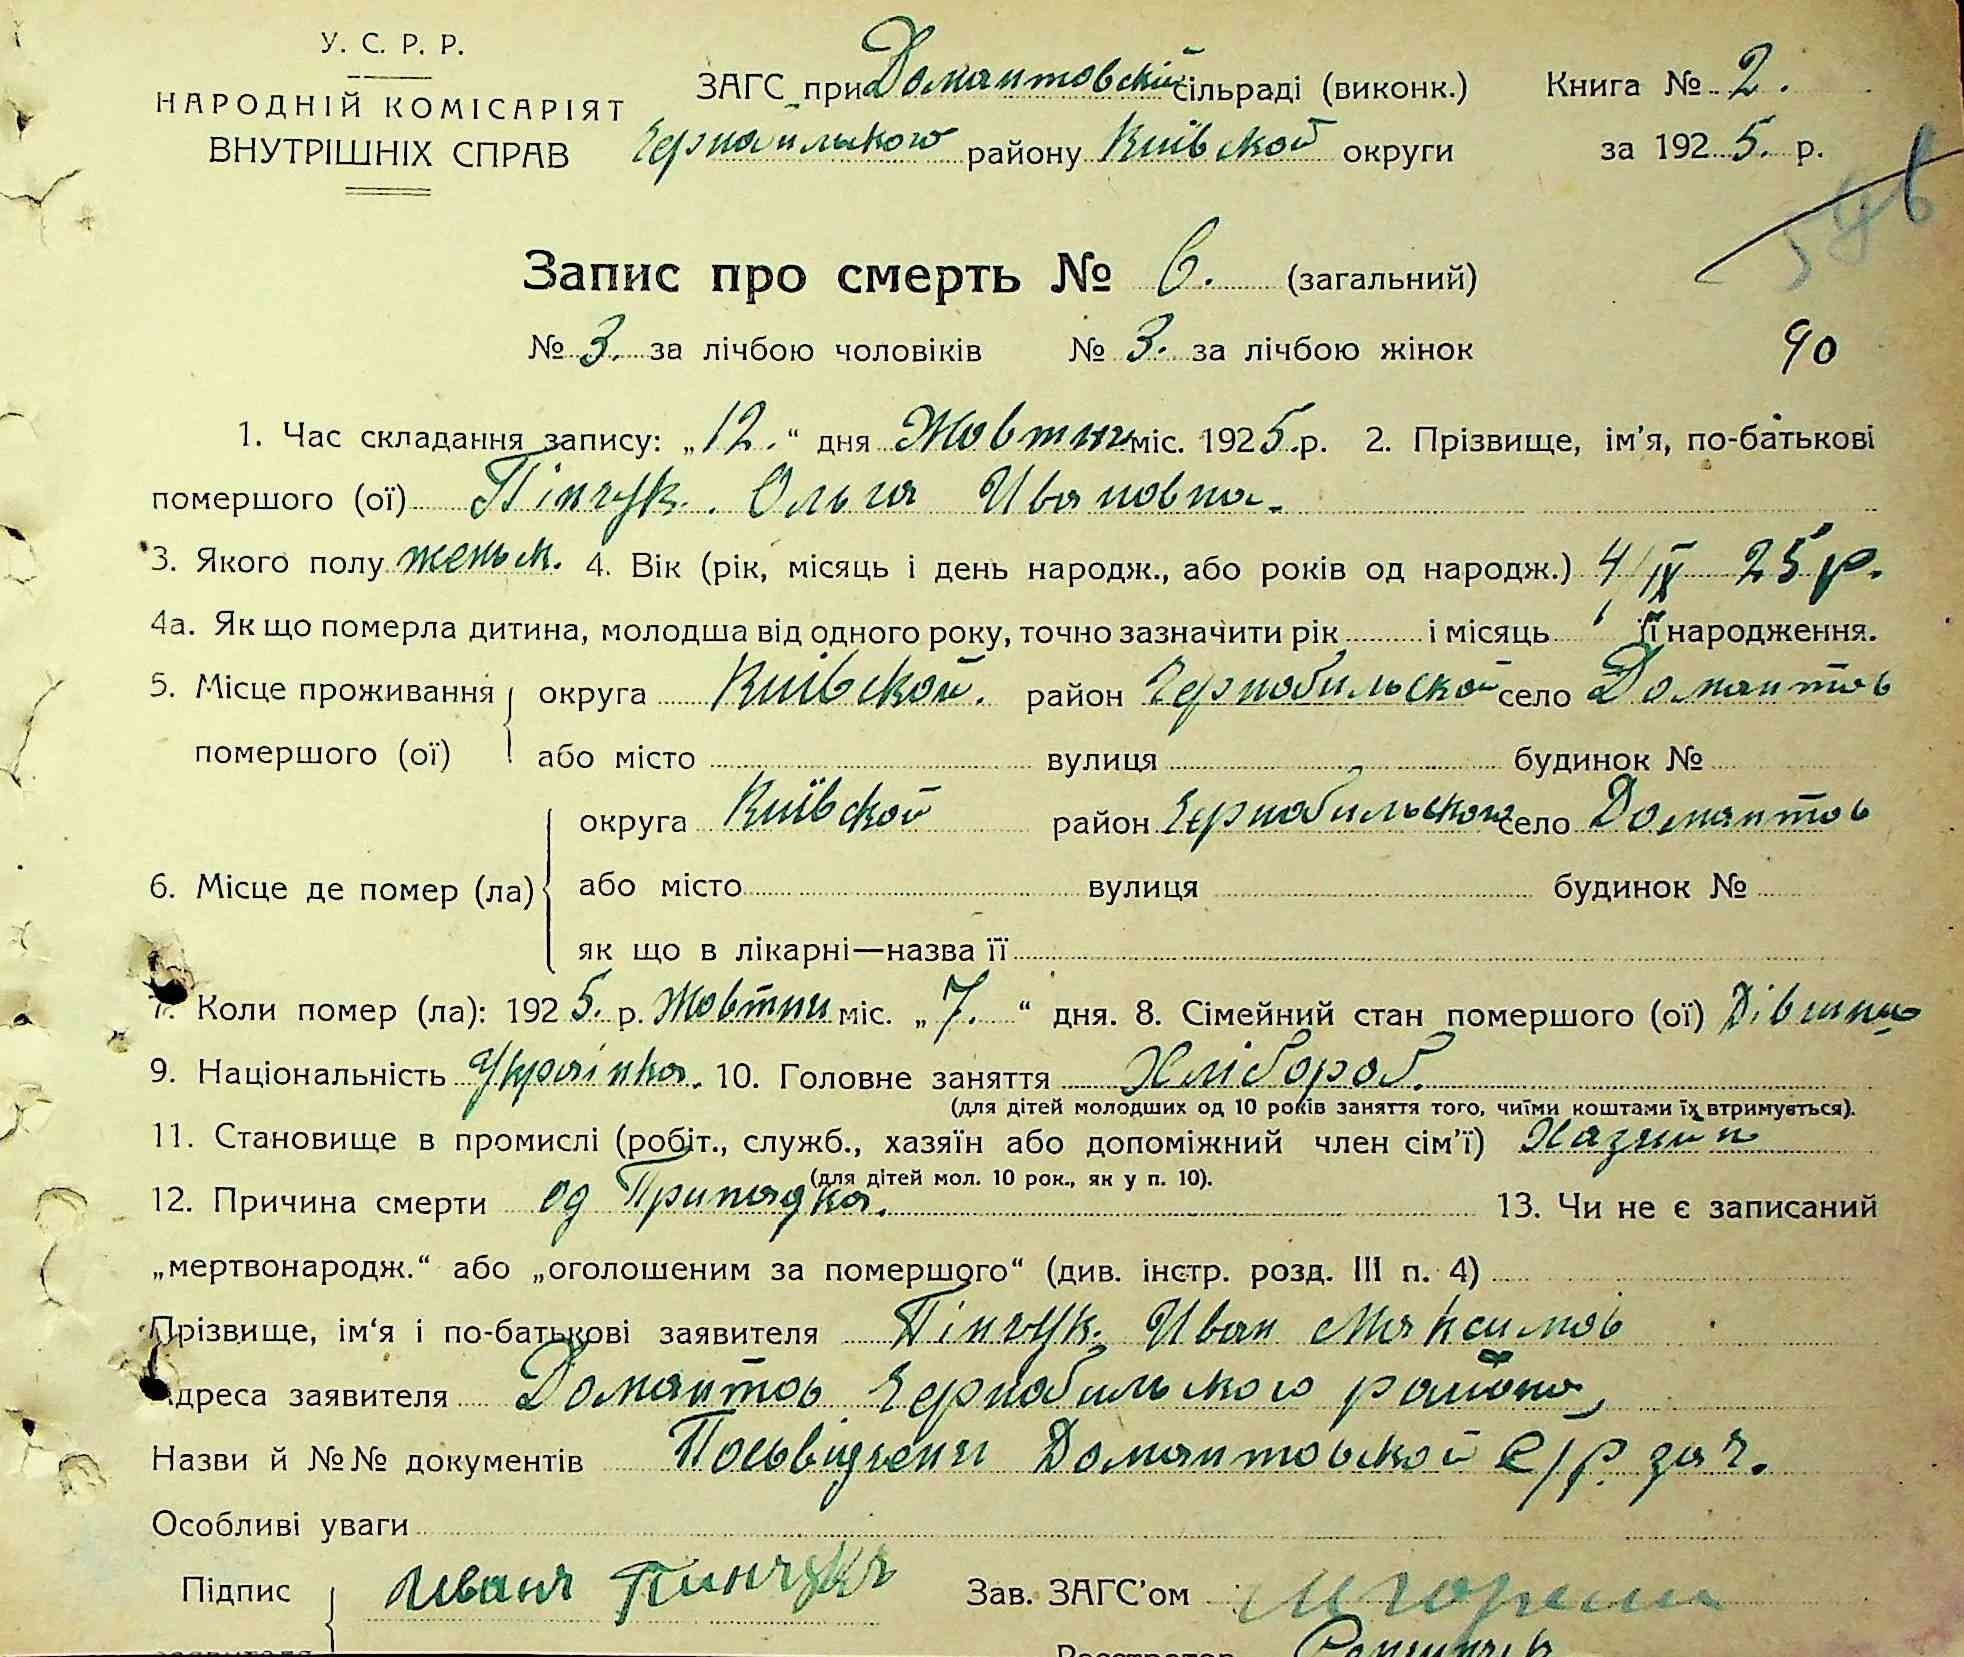 У. С. Р. Р.
НАРОДНІЙ КОМІСАРІЯТ
ВНУТРІШНІХ СПРАВ
ЗАГС при Домантовскій сільраді (виконк.)
Чернобильского району Київской округи
Книга № 2.
за 1925. р.
Запис про смерть № 6. (загальний)
№ 3. за лічбою чоловіків № 3. за лічбою жінок
90
1. Час складання запису: „12.“ дня Жовтни міс. 1925.р. 2. Прізвище, ім'я, по-батькові
помершого (ої) Пінчук. Ольга Ивановна.
3. Якого полу женьск. 4. Вік (рік, місяць і день народж., або років од народж.) 4/IX 25 р.
4а. Як що померла дитина, молодша від одного року, точно зазначити рік і місяць її народження.
5. Місце проживання округа Київской. район Чернобильской село Домантов
помершого (ої) або місто вулиця будинок №
округа Київской район Чернобильского село Домантов
6. Місце де помер (ла) або місто вулиця будинок №
як що в лікарні—назва її
7. Коли помер (ла): 1925. р. Жовтни міс. „7.“ дня. 8. Сімейний стан помершого (ої) Дівиця
9. Національність Украінка. 10. Головне заняття Хлібороб.
(для дітей молодших од 10 років заняття того, чиїми коштами їх втримується).
11. Становище в промислі (робіт., служб., хазяїн або допоміжний член сім'ї) Хазяйн
(для дітей мол. 10 рок., як у п. 10).
12. Причина смерти од Припадка. 13. Чи не є записаний
„мертвонародж.“ або „оголошеним за померщого“ (див. інстр. розд. III п. 4)
Прізвище, ім'я і по-батькові заявителя Пінчук. Иван Максимов
Адреса заявителя Домантов Чернобильского района,
Назви й №№ документів Посьвідчени Домантовской с/р. за ч.
Особливі уваги
Підпис Иванъ Пинчукъ Зав. ЗАГС'ом
заявителя Реєстратор